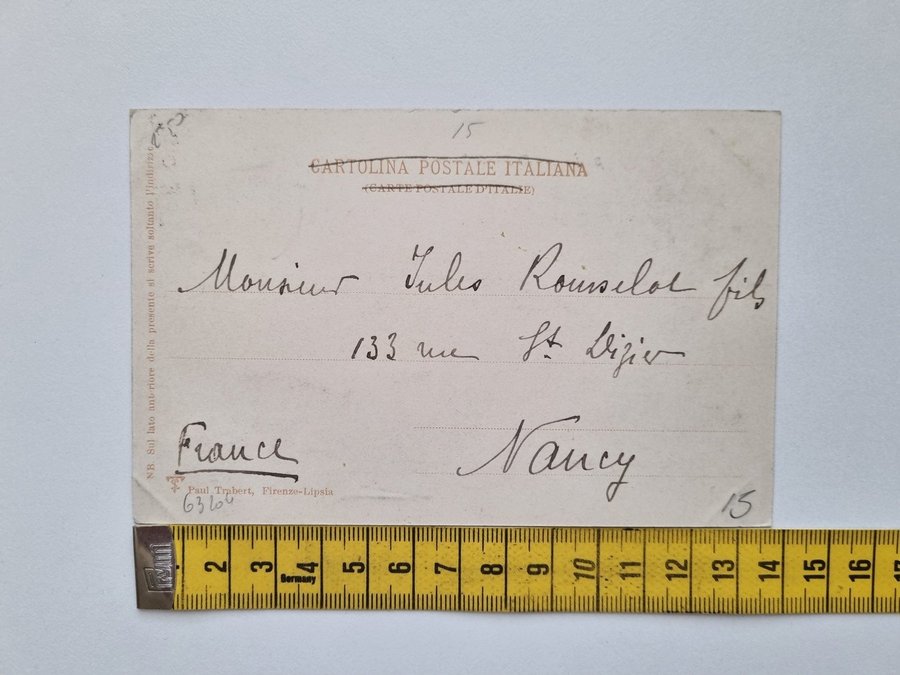 15
CARTOLINA POSTALE ITALIANA
(CARTE POSTALE D'ITALIE)
NB. Sul lato anteriore della presente si scrive soltanto l'indirizzo
Monsieur Jules Rousselot fils
133 rue St. Dizier
Nancy
France
Paul Trabert, Firenze-Lipsia
15
2 3 4 5 6 7 8 9 10 11 12 13 14 15 16 17
Germany